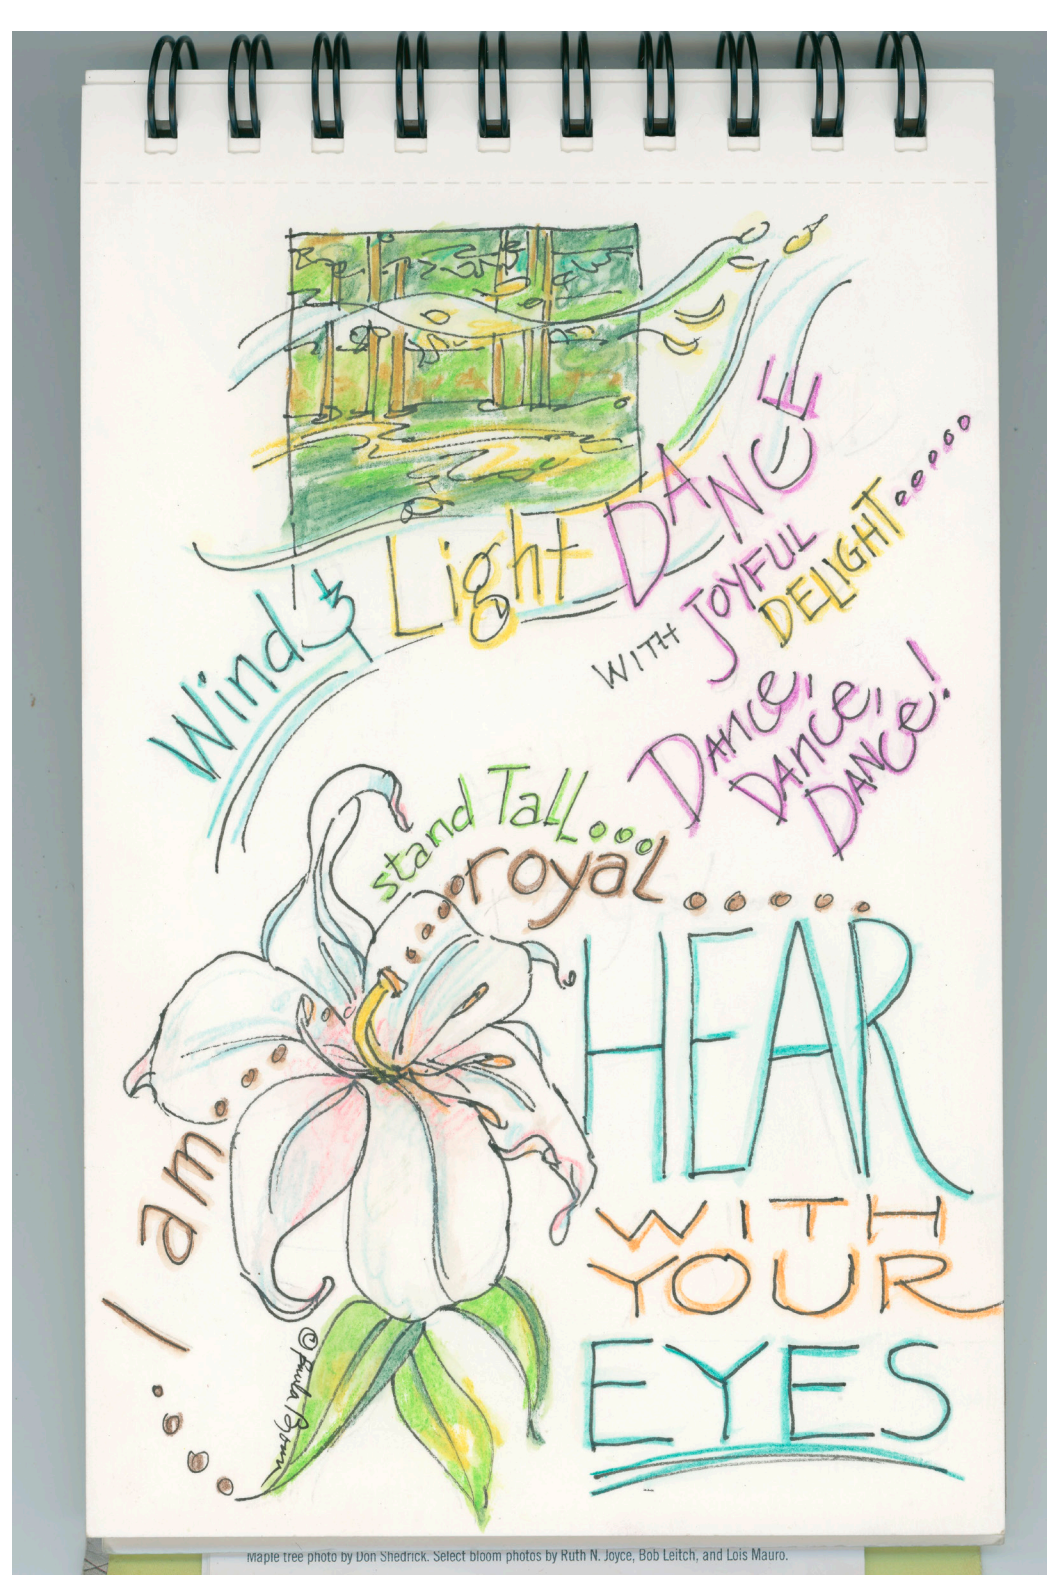 Wind & Light DANCE
WITH JOYFUL
DELIGHT......
DANCE,
DANCE,
DANCE!
stand Tall...
...I am......royal.....
HEAR
WITH
YOUR
EYES
© Paula Brown
Maple tree photo by Don Shedrick. Select bloom photos by Ruth N. Joyce, Bob Leitch, and Lois Mauro.